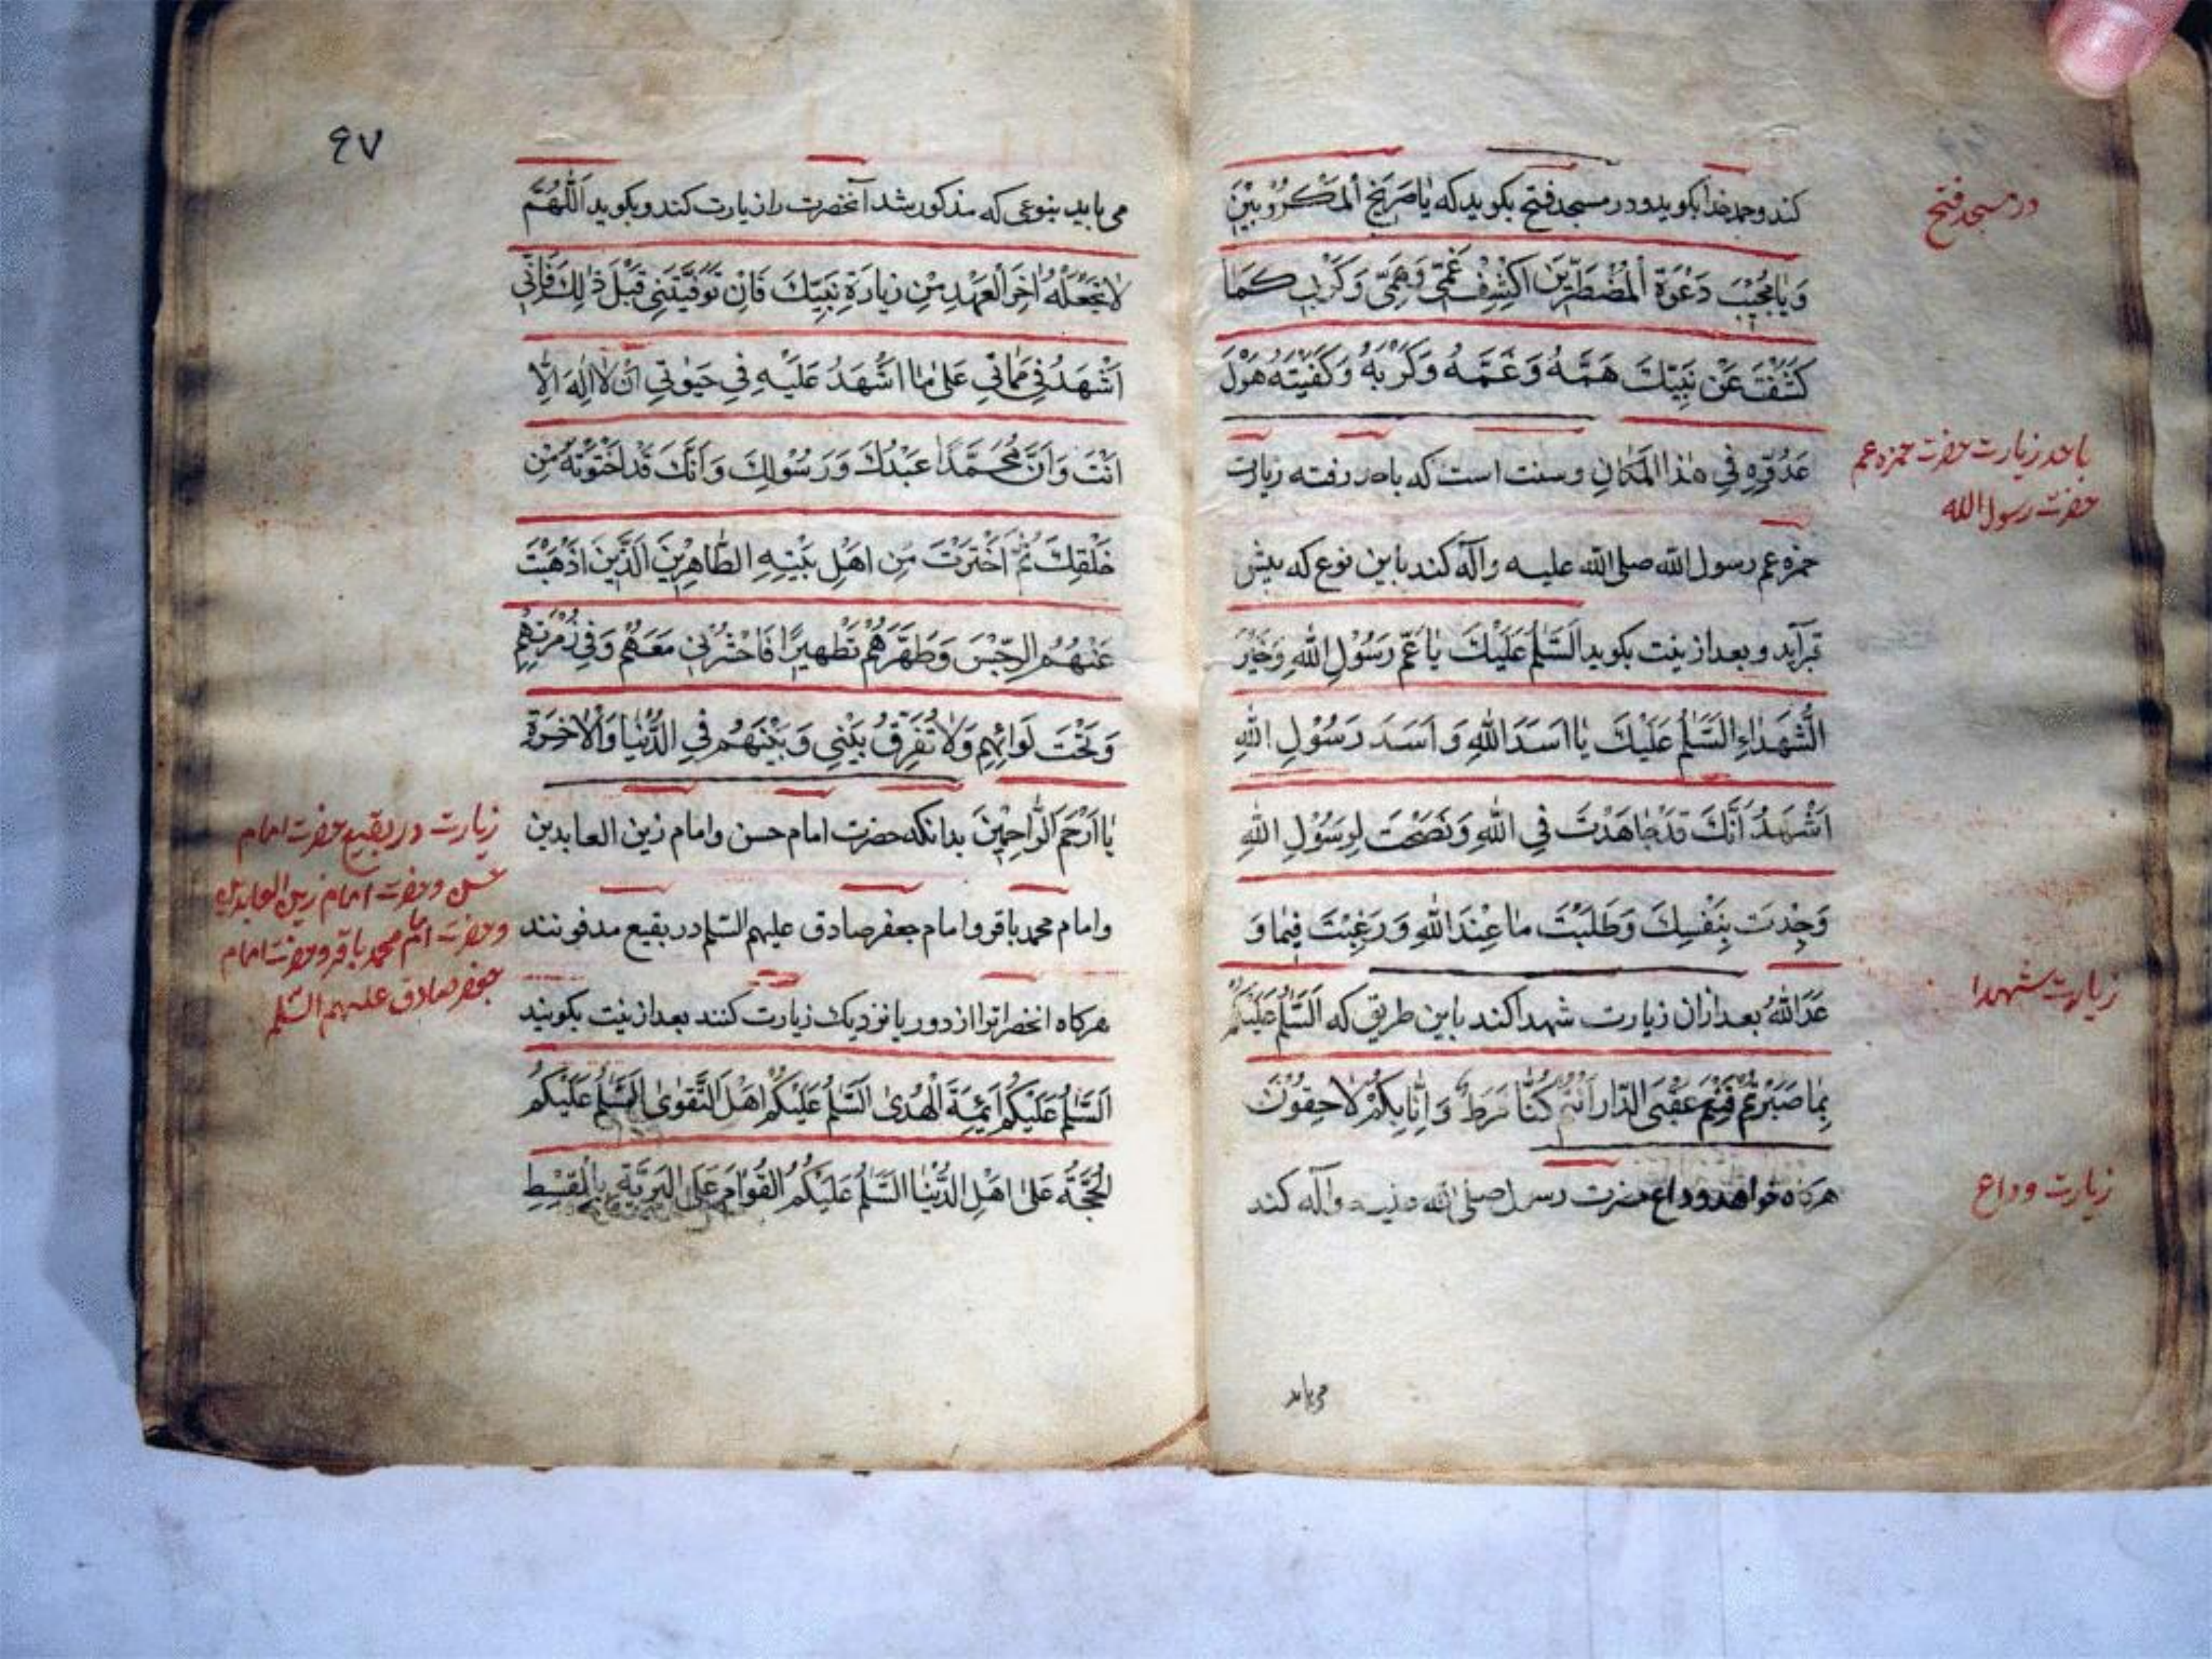 در مسجد فتح
کند و حمد خدا بکوید و در مسجد فتح بکوید که یٰا صَرِیخَ الْمَکْرُوْبِیْنَ
وَ یٰا مُجِیْبَ دَعْوَةِ الْمُضْطَرِّیْنَ اکْشِفْ غَمّی وَهَمِّی وَ کَرْبی کَمٰا
کَشَفْتَ عَنْ نَبِیِّكَ هَمَّهُ وَ غَمَّهُ وَ کَرْبَهُ وَ کَفَیْتَهُ هَوْلَ
باحد زیارت حضرت حمزه عم
حضرت رسول الله
عَدُوِّهِ فِی هٰذَا الْمَکٰانِ و سنت است که باحد رفته زیارت
حمزه عم رسول الله صلی الله علیه و آله کند باین نوع که پیش
قبر آید و بعد از نیت بکوید السَّلٰمُ عَلَیْكَ یٰا عَمَّ رَسُوْلِ اللهِ وَ خَیْرَ
الشُّهَدٰاءِ السَّلٰمُ عَلَیْكَ یٰا اَسَدَ اللهِ وَ اَسَدَ رَسُوْلِ اللهِ
اَشْهَدُ اَنَّكَ قَدْ جٰاهَدْتَ فِی اللهِ وَ نَصَحْتَ لِرَسُوْلِ اللهِ
وَجُدْتَ بِنَفْسِكَ وَ طَلَبْتَ مٰا عِنْدَ اللهِ وَ رَغِبْتَ فِیمٰا وَ
زیارت شهدا
عَدَ اللهُ بعد ازان زیارت شهدا کند باین طریق که السَّلٰمُ عَلَیْکُمْ
بِمٰا صَبَرْتُمْ فَنِعْمَ عُقْبَی الدّٰارِ اَنْتُمْ لَنٰا فَرَطٌ وَ اِنّٰا بِکُمْ لاٰحِقُوْنَ
زیارت وداع
هرکاه خواهد وداع حضرت رسول صلی الله علیه و آله کند
می باید
۶۷
می باید بنوعی که مذکور شد آنحضرت را زیارت کند و بکوید اَللّٰهُمَّ
لاٰ تَجْعَلْهُ اٰخِرَ الْعَهْدِ مِنْ زِیٰارَةِ نَبِیِّكَ فَاِنْ تَوَفَّیْتَنِی قَبْلَ ذٰلِكَ فَاِنّی
اَشْهَدُ فِی مَمٰاتِی عَلیٰ مٰا اَشْهَدُ عَلَیْهِ فِی حَیٰوتِی اَنْ لاٰ اِلٰهَ اِلّٰا
اَنْتَ وَ اَنَّ مُحَمَّدًا عَبْدُكَ وَ رَسُوْلُكَ وَ اَنَّكَ قَدْ اخْتَرْتَهُ مِنْ
خَلْقِكَ ثُمَّ اخْتَرْتَ مِنْ اَهْلِ بَیْتِهِ الطّٰاهِرِیْنَ الَّذِیْنَ اَذْهَبْتَ
عَنْهُمُ الرِّجْسَ وَ طَهَّرْهُمْ تَطْهِیرًا فَاحْشُرْنِی مَعَهُمْ وَ فِی زُمْرَتِهِمْ
وَ تَحْتَ لَوٰائِهِمْ وَ لاٰ تُفَرِّقْ بَیْنِی وَ بَیْنَهُمْ فِی الدُّنْیٰا وَ الْاٰخِرَةِ
یٰا اَرْحَمَ الرّٰاحِمِیْنَ بدانکه حضرت امام حسن و امام زین العابدین
زیارت در بقیع حضرت امام
حسن و حضرت امام زین العابدین
و حضرت امام محمد باقر و حضرت امام
جعفر صادق علیهم السّلم
و امام محمد باقر و امام جعفر صادق علیهم السّلم در بقیع مدفونند
هرکاه انحضراترا از دور یا نزدیك زیارت کنند بعد از نیت بکویند
السَّلٰمُ عَلَیْکُمْ اَئِمَّةَ الْهُدیٰ السَّلٰمُ عَلَیْکُمْ اَهْلَ التَّقْویٰ السَّلٰمُ عَلَیْکُمُ
الْحُجَّةُ عَلیٰ اَهْلِ الدُّنْیٰا السَّلٰمُ عَلَیْکُمُ الْقُوّٰامَ عَلَی الْبَرِیَّةِ بِالْقِسْطِ